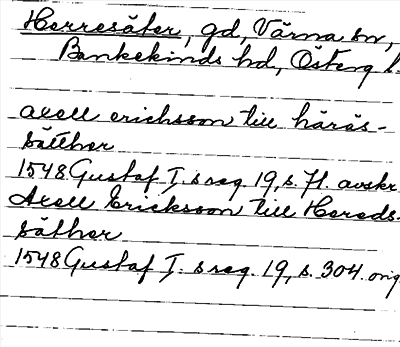 Herresäter, gd, Värna sn,
Bankekinds hd, Österg l.
axell ericksson till häräs-
sätther
1548 Gustaf I.s reg. 19, s. 71. avskr.
Axell Ericksson till Hereds-
säther
1548 Gustaf I. s reg. 19, s. 304. orig.